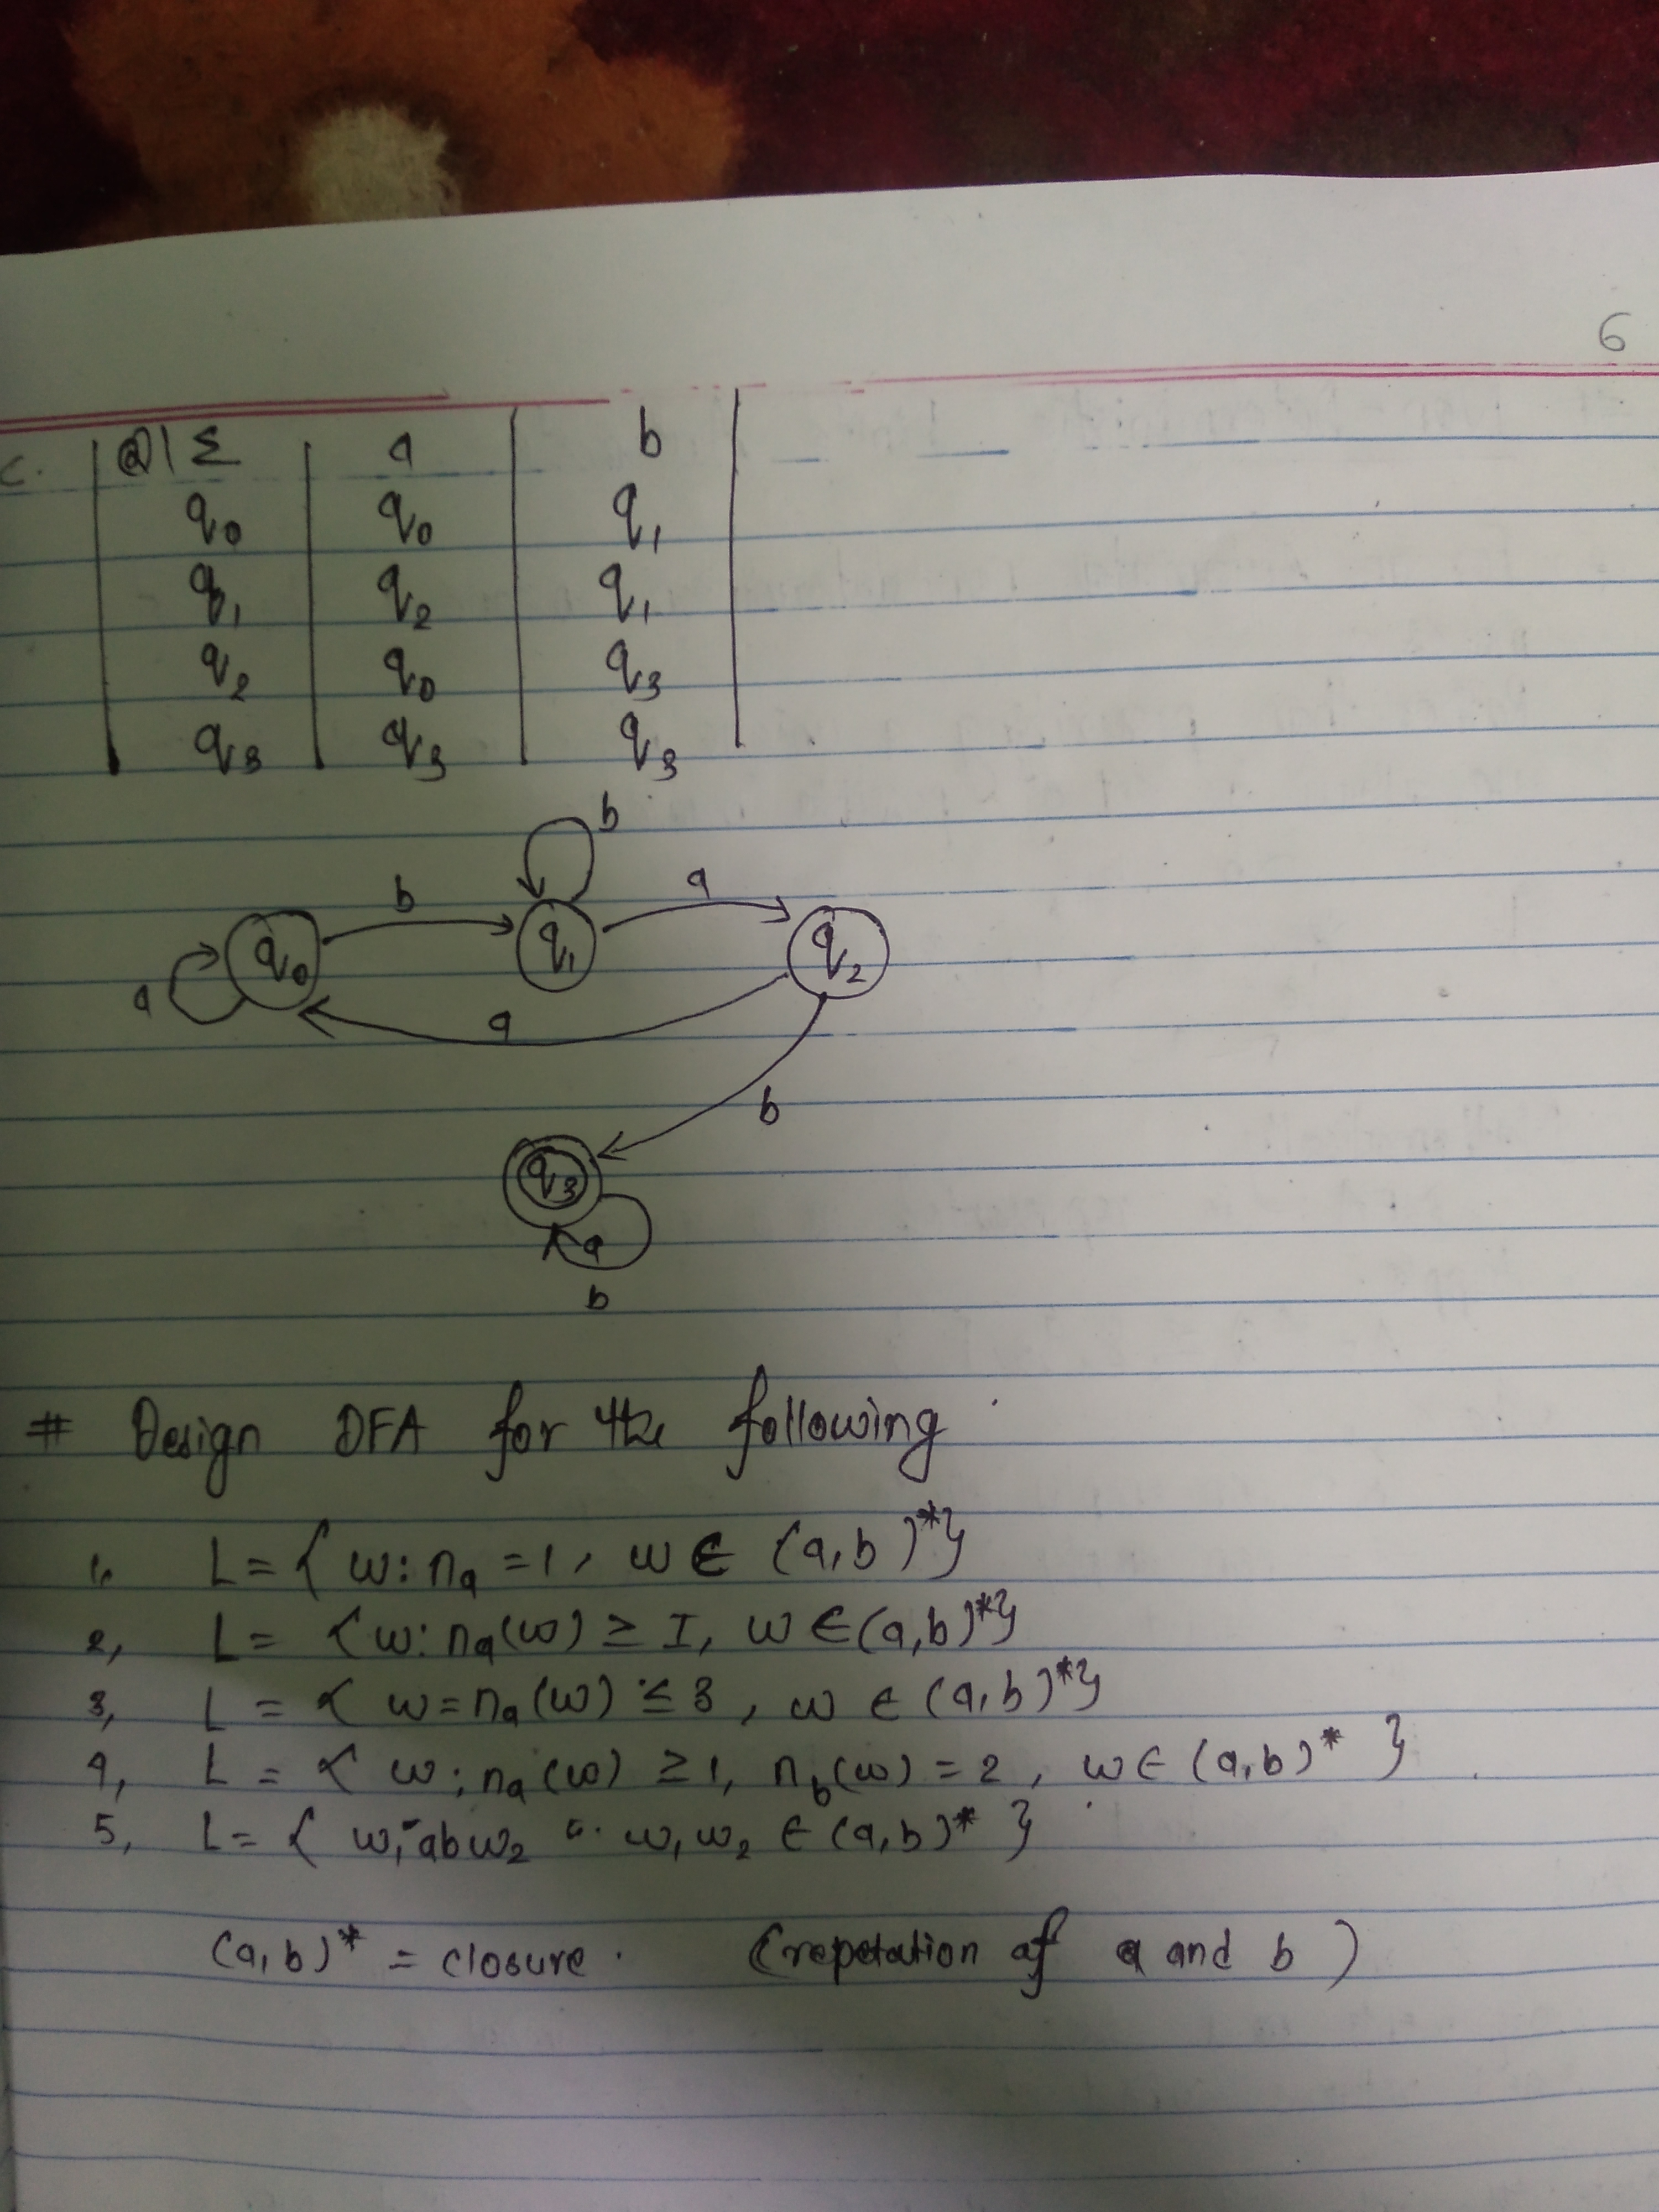 6
C. Q|Σ a b
q0 q0 q1
q1 q2 q1
q2 q0 q3
q3 q3 q3
b
b a
q0 q1 q2
a
a
b
q3
a
b
# Design DFA for the following
1. L = { w: na = 1, w ∈ (a,b)*}
2, L = {w: na(w) ≥ I, w ∈ (a,b)*}
3, L = { w = na(w) ≤ 3, w ∈ (a,b)*}
4, L = { w: na(w) ≥ 1, nb(w) = 2, w ∈ (a,b)* }
5, L = { w1 ab w2 : w1 w2 ∈ (a,b)* }
(a,b)* = closure. (repetation of a and b)